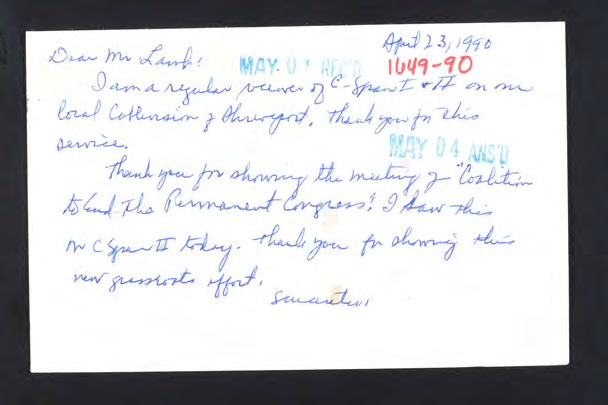 April 23, 1990
Dear Mr Lamb:
MAY 01 REC'D 1649-90
I am a regular viewer of C-Span I & II on our
local Cablevision of Shreveport. Thank you for this
service.
MAY 04 ANS'D
Thank you for showing the meeting of "Coalition
to End The Permanent Congress". I saw this
on C Span II today. Thank you for showing this
new grassroots effort.
Sincerely,